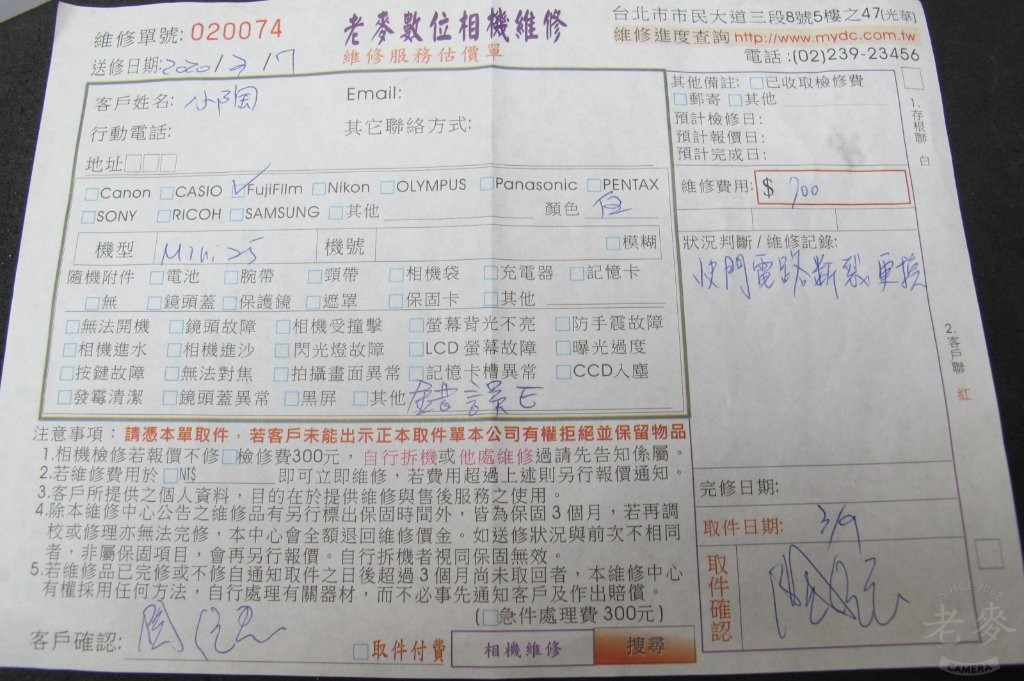 維修單號: 020074
老麥數位相機維修
維修服務估價單
台北市市民大道三段8號5樓之47(光華)
維修進度查詢 http://www.mydc.com.tw
電話 :(02)239-23456
送修日期:2020/3/7
客戶姓名: 小陶
Email:
行動電話:
其它聯絡方式:
地址□□□
□Canon □CASIO ☑FujiFilm □Nikon □OLYMPUS □Panasonic □PENTAX
□SONY □RICOH □SAMSUNG □其他 顏色 白
機型 Mini 25 機號 □模糊
隨機附件 □電池 □腕帶 □頸帶 □相機袋 □充電器 □記憶卡
□無 □鏡頭蓋 □保護鏡 □遮罩 □保固卡 □其他
□無法開機 □鏡頭故障 □相機受撞擊 □螢幕背光不亮 □防手震故障
□相機進水 □相機進沙 □閃光燈故障 □LCD 螢幕故障 □曝光過度
□按鍵故障 □無法對焦 □拍攝畫面異常 □記憶卡槽異常 □CCD入塵
□發霉清潔 □鏡頭蓋異常 □黑屏 □其他 錯誤E
其他備註: □已收取檢修費
□郵寄 □其他
預計檢修日:
預計報價日:
預計完成日:
維修費用: $ 700
狀況判斷/維修記錄:
快門電路斷裂更換
完修日期:
取件日期: 3/9
取件確認
1.存根聯 白
2.客戶聯 紅
注意事項 : 請憑本單取件，若客戶未能出示正本取件單本公司有權拒絕並保留物品
1.相機檢修若報價不修□檢修費300元，自行拆機或他處維修過請先告知係屬。
2.若維修費用於 □NT$ 即可立即維修，若費用超過上述則另行報價通知。
3.客戶所提供之個人資料，目的在於提供維修與售後服務之使用。
4.除本維修中心公告之維修品有另行標出保固時間外，皆為保固 3 個月，若再調
校或修理亦無法完修，本中心會全額退回維修價金。如送修狀況與前次不相同
者，非屬保固項目，會再另行報價。自行拆機者視同保固無效。
5.若維修品已完修或不修自通知取件之日後超過 3 個月尚未取回者，本維修中心
有權採用任何方法，自行處理有關器材，而不必事先通知客戶及作出賠償。
(□急件處理費 300元)
客戶確認:
□取件付費 相機維修 搜尋
SINCE 2007
老麥
CAMERA